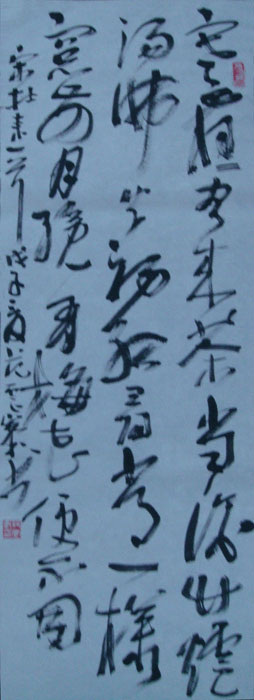 寒夜客来茶当酒竹爐
汤沸火初红寻常一様
窗前月纔有梅花便不同
宋杜耒一首 戊子夏